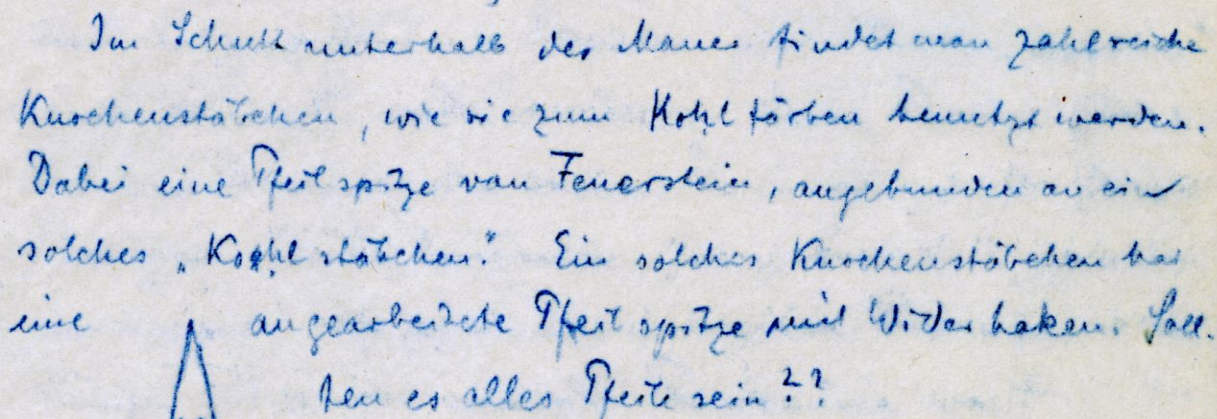 Im Schutt unterhalb der Mauer findet man zahlreiche
Knochenstäbchen, wie sie zum Kohl färben benutzt werden.
Dabei eine Pfeilspitze von Feuerstein, angebunden an ein
solches „Kohlstäbchen“. Ein solches Knochenstäbchen hat
eine angearbeitete Pfeilspitze mit Widerhaken. Soll-
ten es alles Pfeile sein??